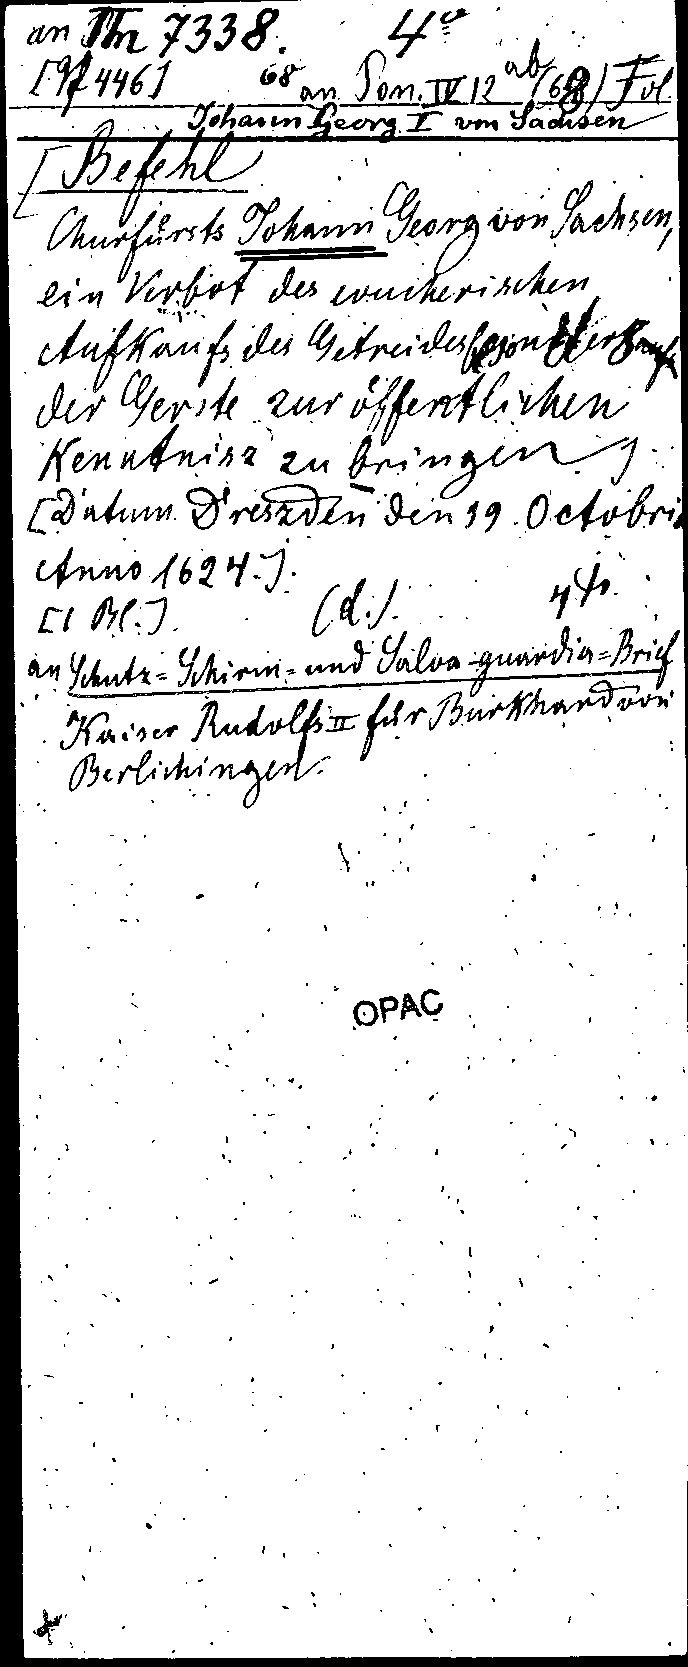 an IIn 7338. 4°
[Qf 446] 68 an Pon. IV 12 ab (68) Fol
Johann Georg I von Sachsen
[Befehl
Churfürsts Johann Georg von Sachsen,
ein Verbot des wucherischen
Aufkaufs des Getreides besonders
der Gerste zur öffentlichen
Kenntnisz zu bringen].
[Datum Dreszden den 19. Octobris
Anno 1624.].
[1 Bl.]. (d.).
an Schutz=Schirm=und Salva-guardia=Brief
Kaiser Rudolfs II für Burkhard von
Berlichingen.
OPAC